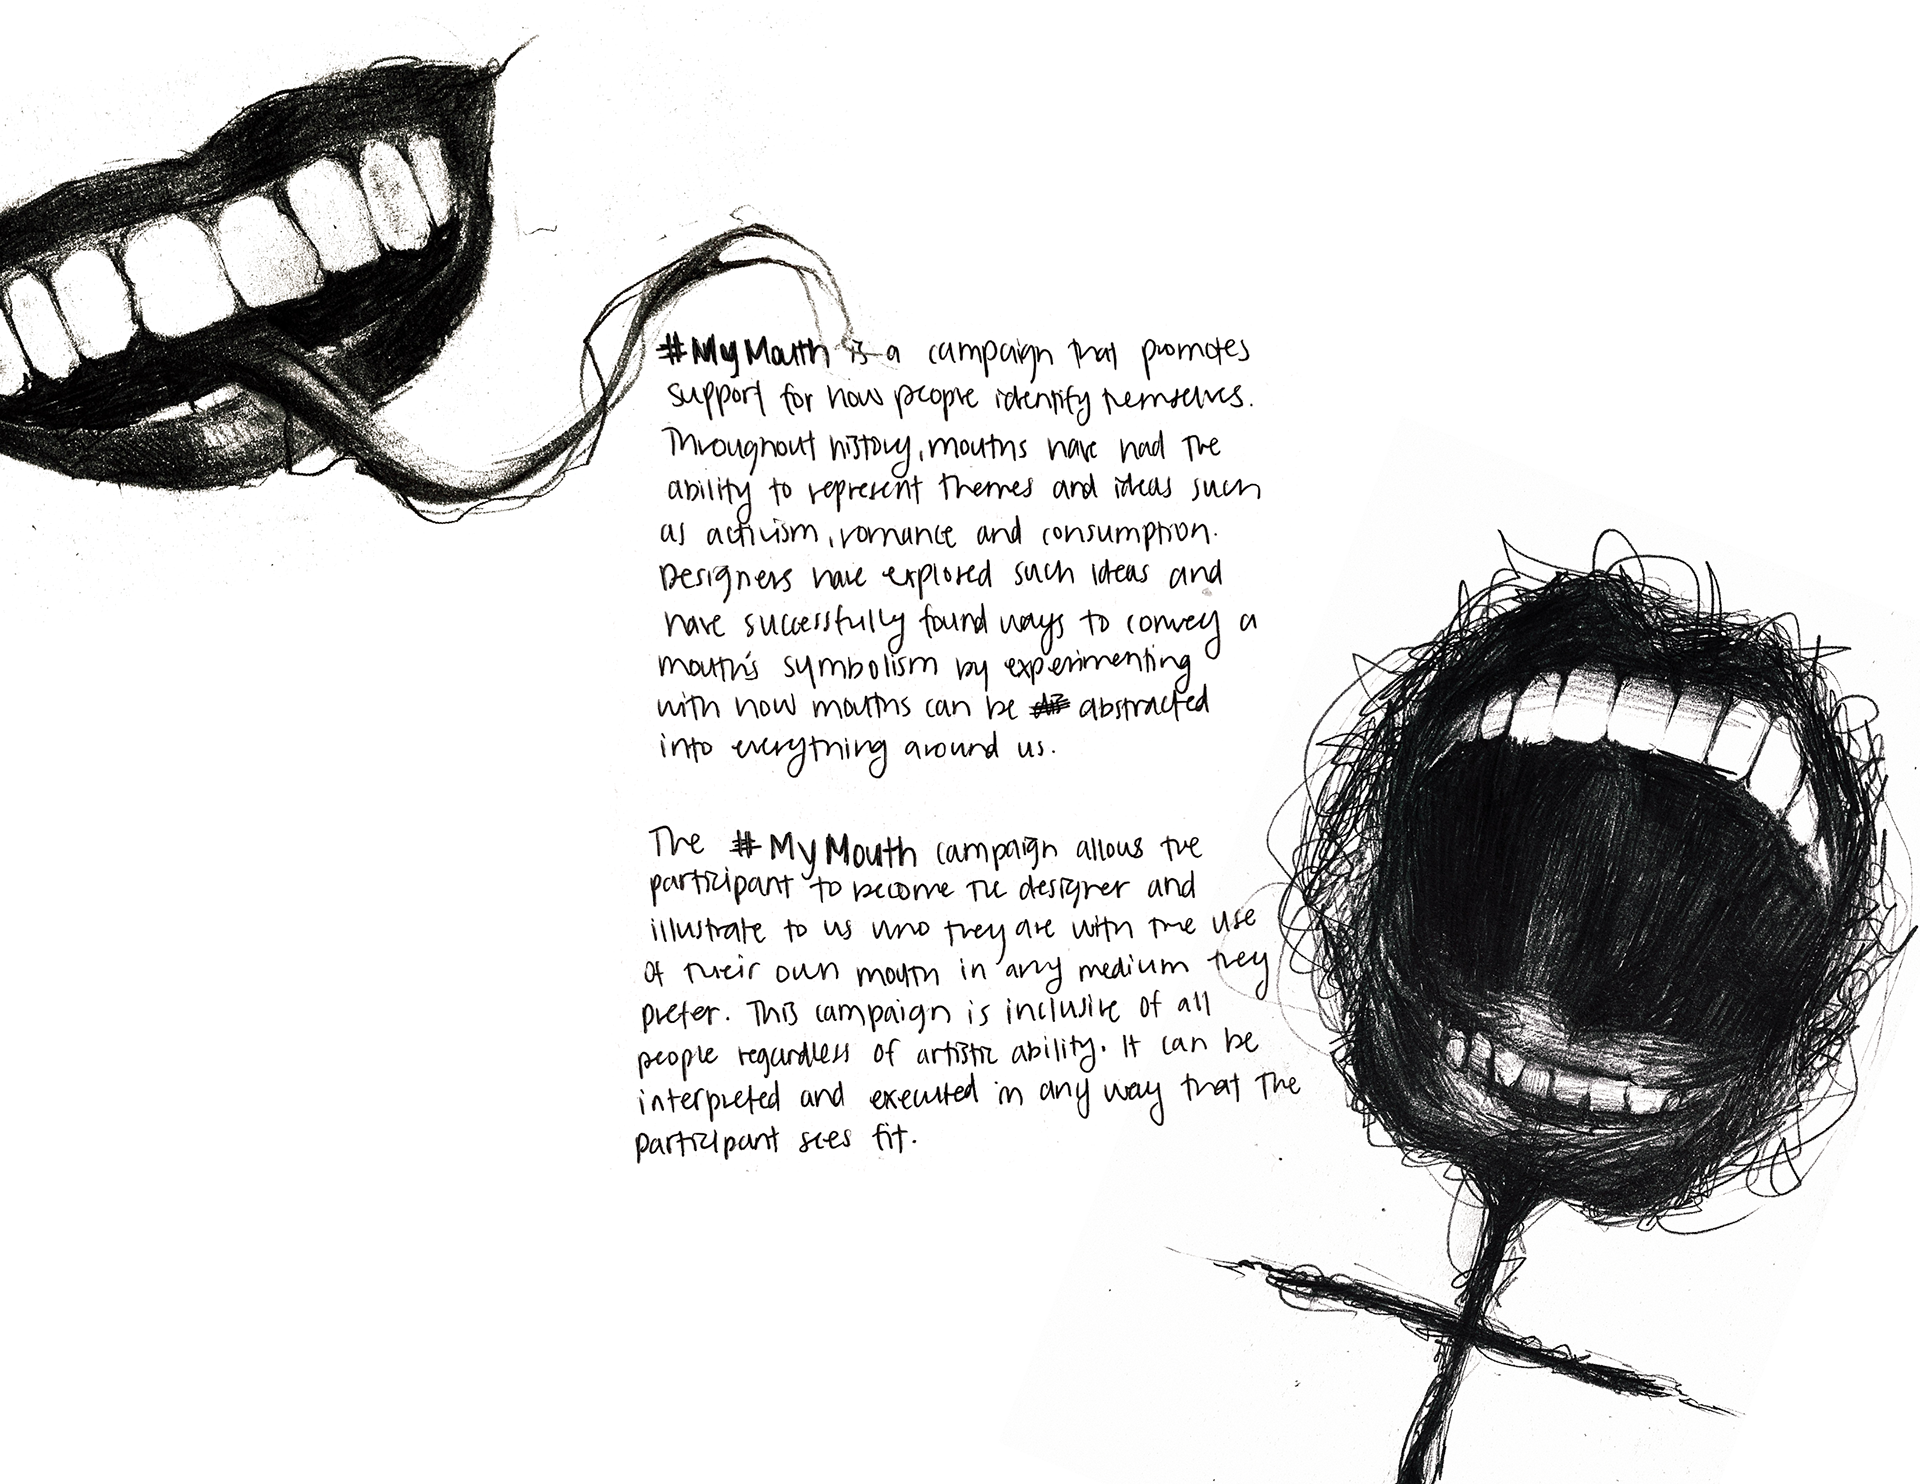 #MyMouth is a campaign that promotes
support for how people identify themselves.
Throughout history, mouths have had the
ability to represent themes and ideas such
as activism, romance and consumption.
Designers have explored such ideas and
have successfully found ways to convey a
mouth's symbolism by experimenting
with how mouths can be abstracted
into everything around us.
The #MyMouth campaign allows the
participant to become the designer and
illustrate to us who they are with the use
of their own mouth in any medium they
prefer. This campaign is inclusive of all
people regardless of artistic ability. It can be
interpreted and executed in any way that the
participant sees fit.